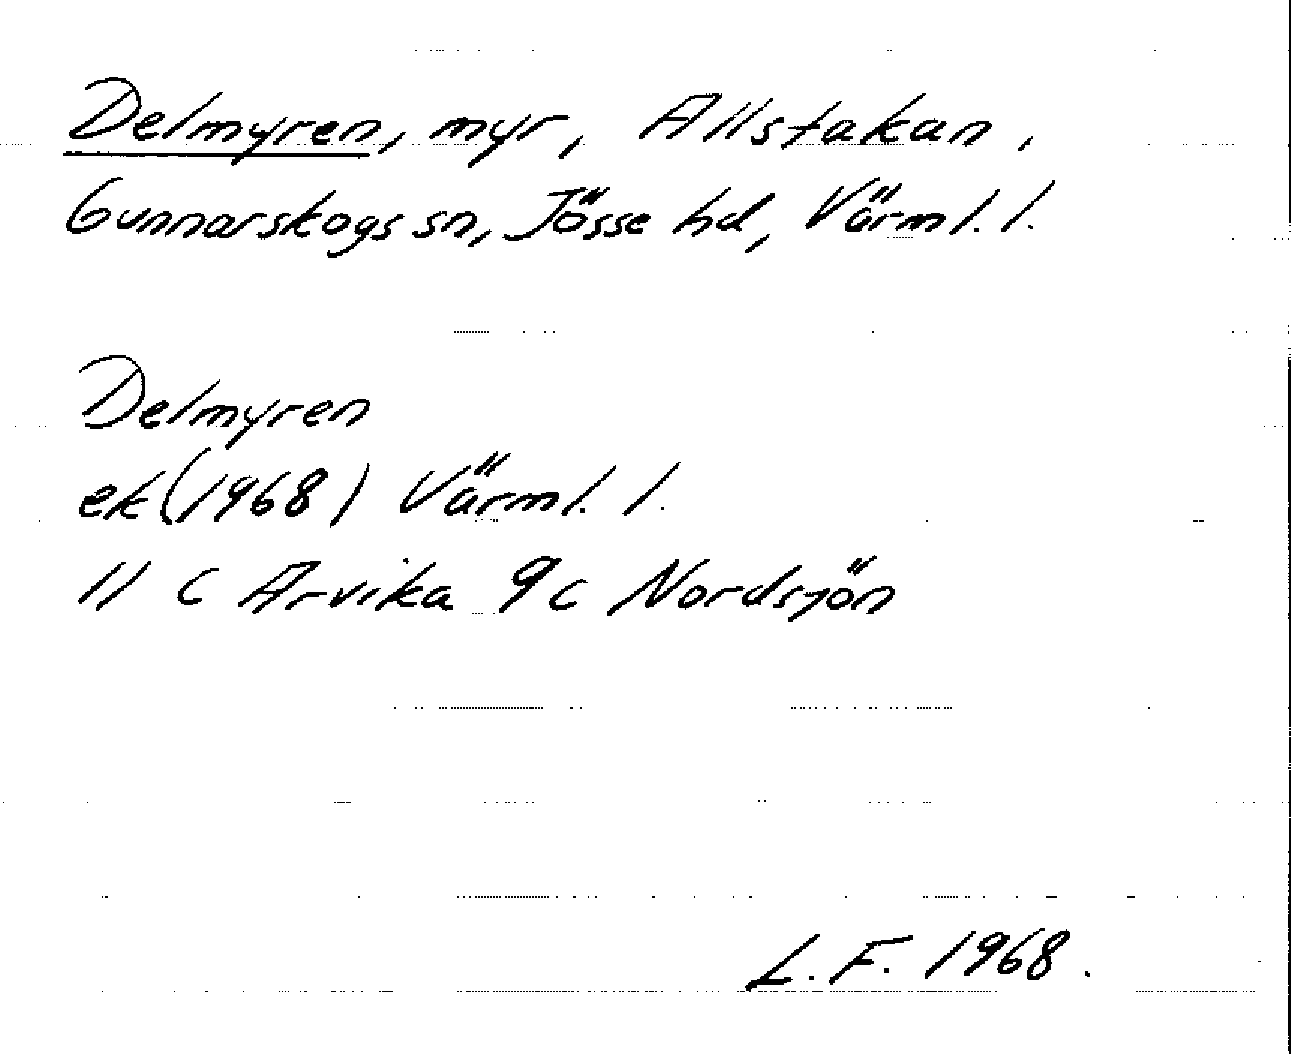 Delmyren, myr, Allstakan,
Gunnarskogs sn, Jösse hd, Värml. l.
Delmyren
ek (1968) Värml. l.
11 C Arvika 9c Nordsjön
L. F. 1968.